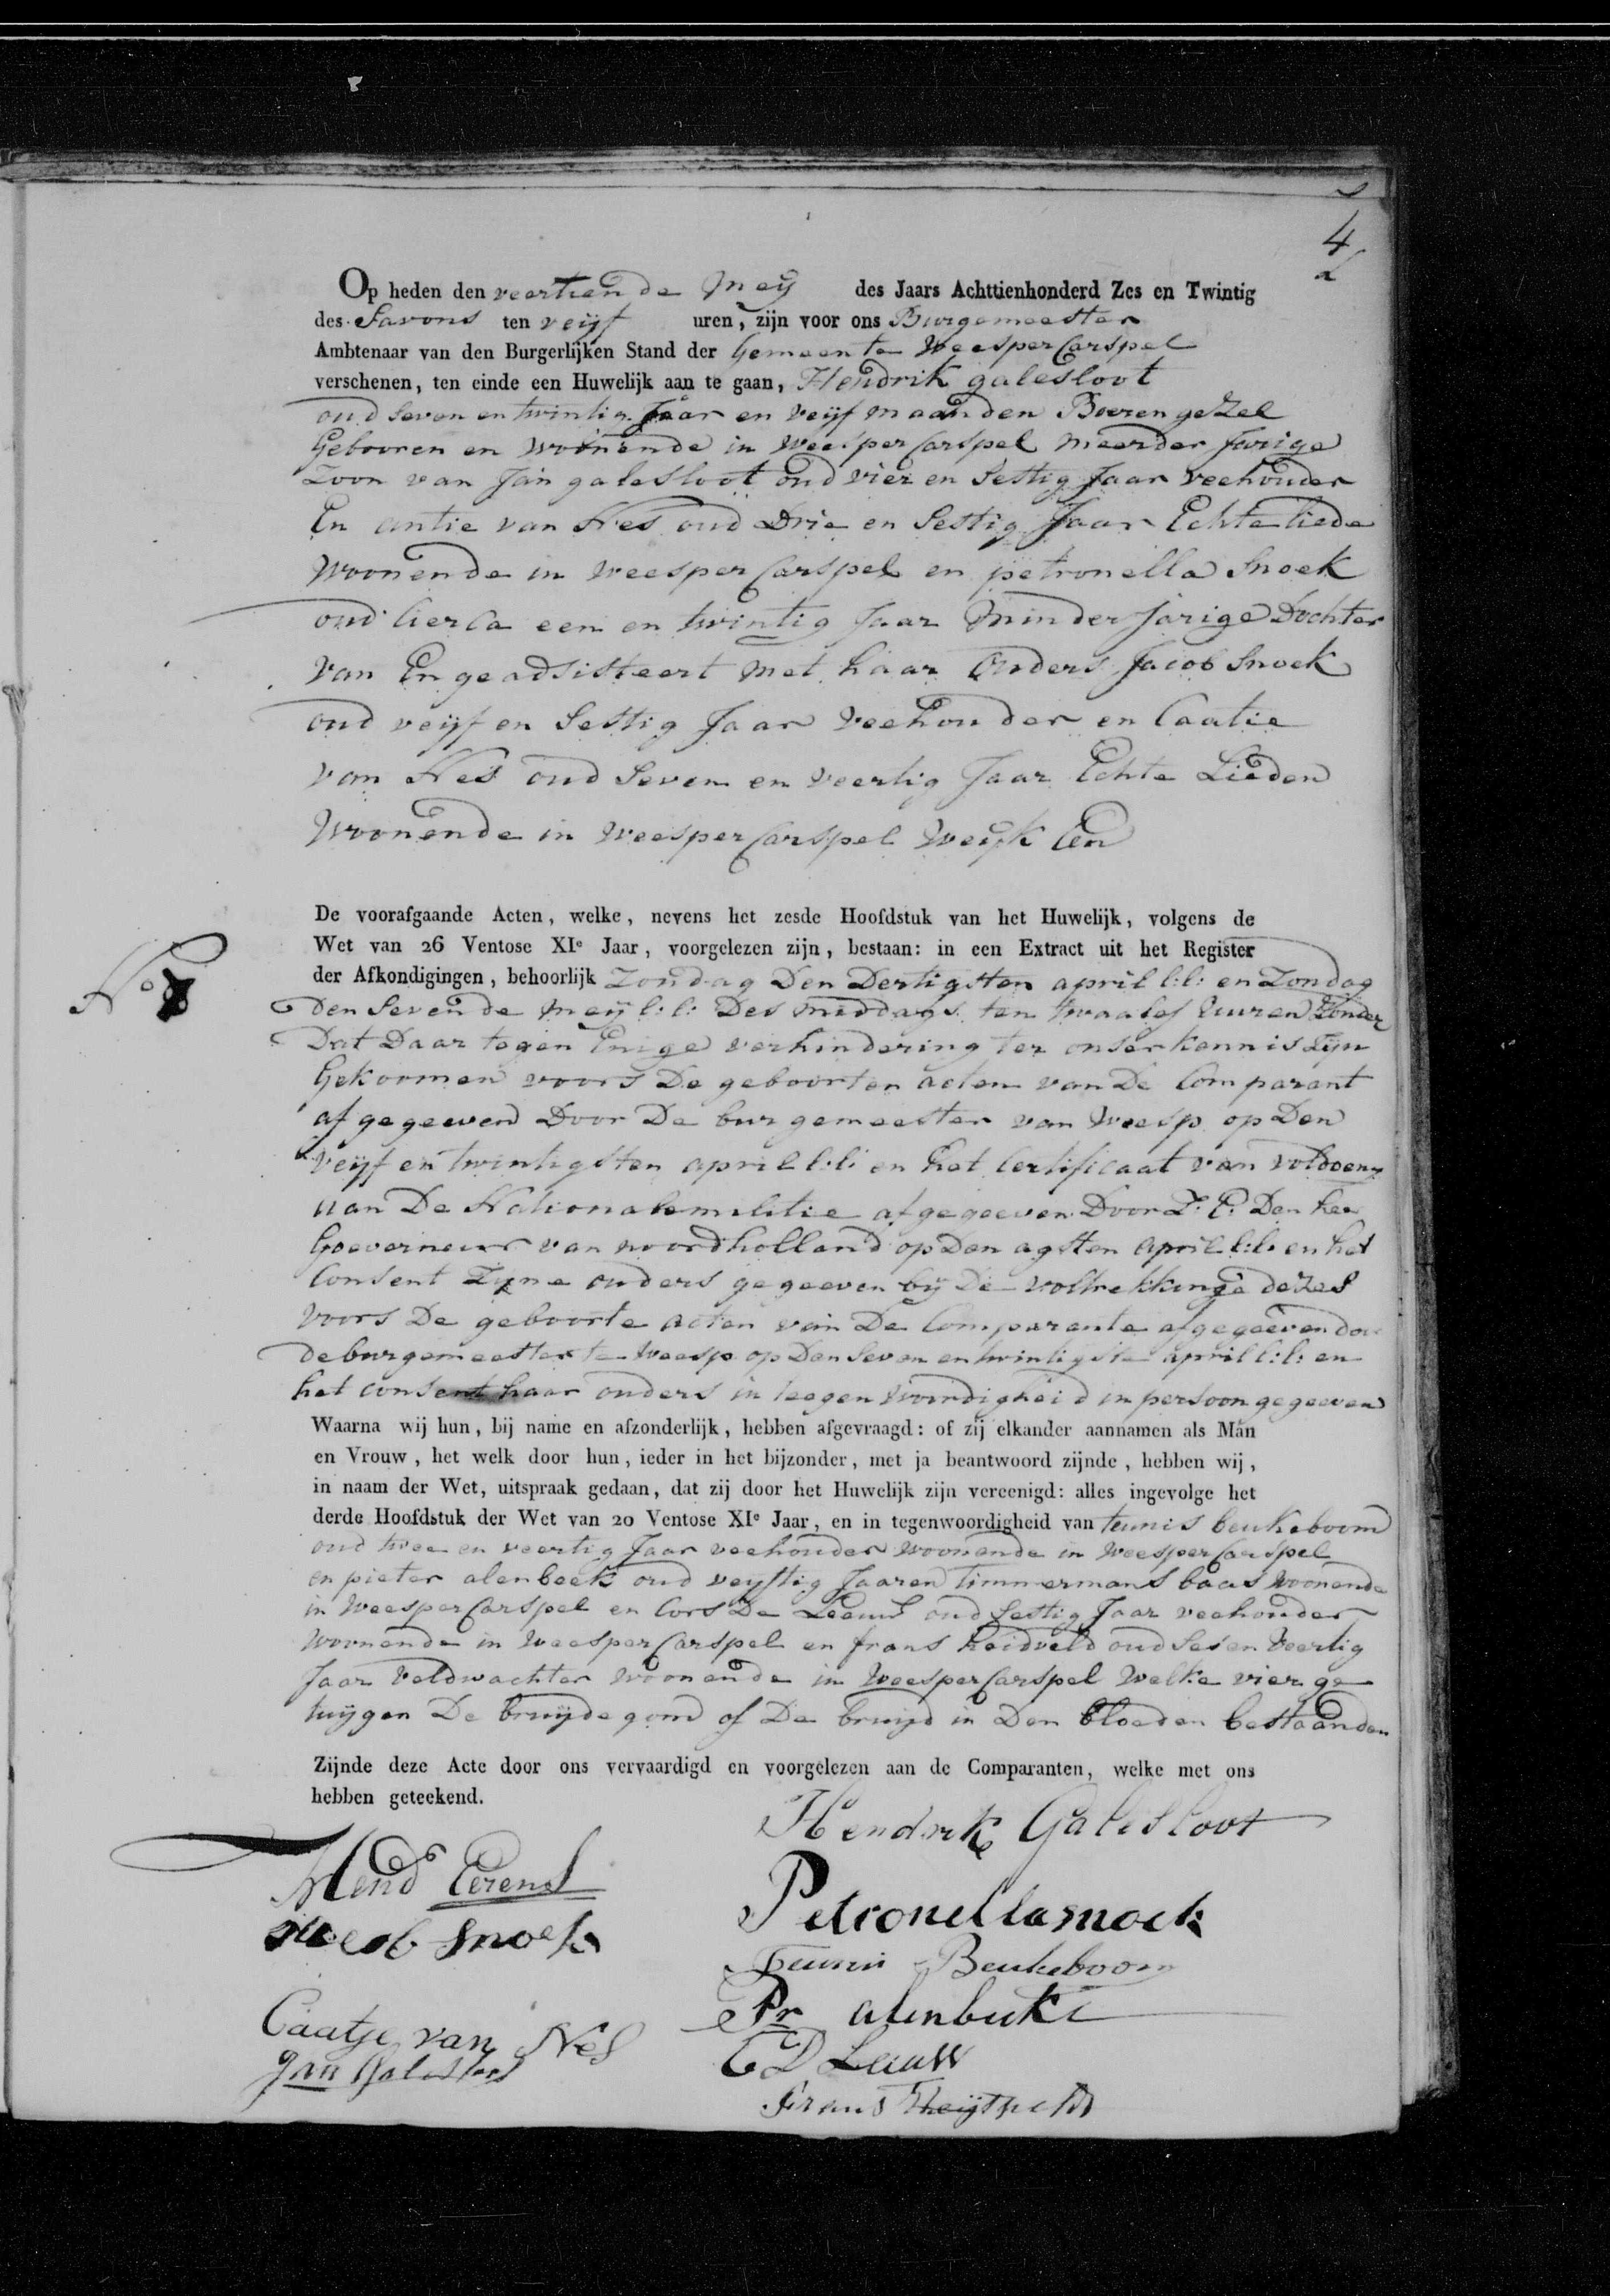 4
Op heden den veertiende Meij des Jaars Achttienhonderd Zes en Twintig
des Savons ten veijf uren, zijn voor ons Burgemeester
Ambtenaar van den Burgerlijken Stand der Gemeente WeesperCarspel
verschenen, ten einde een Huwelijk aan te gaan, Hendrik galesloot
oud Seven en twintig Jaar en veijf maanden Boeren geZel
Gebooren en Woonende in WeesperCarspel meerder Jarige
Zoon van Jan galesloot oud vier en Sestig Jaar veehouder
En antie van Nes oud Drie en Sestig Jaar Echte liede
Woonende in WeesperCarspel en petronella Snoek
oud Cierca een en twintig Jaar Minder Jarige Dochter
van En geadsisteert met haar Ouders Jacob Snoek
oud veijf en Sestig Jaar Veehouder en Caatie
van Nes oud Seven en veertig Jaar Echte Lieden
Woonende in WeesperCarspel Weijk Een
De voorafgaande Acten, welke, nevens het zesde Hoofdstuk van het Huwelijk, volgens de
Wet van 26 Ventose XIe Jaar, voorgelezen zijn, bestaan: in een Extract uit het Register
der Afkondigingen, behoorlijk Zondag Den Dertigsten april l:l: en Zondag
No
den Sevende Meij l:l: Des middags ten twaalef Euuren Zonder
Dat Daar tegen Enige verhindering ter onser kennis Zijn
Gekoomen voors De geboorten acten van De Comparant
af gegeeven Door De burgemeester van Weesp op Den
Veijf en twintigsten april l:l: en het Certificaat van voldoeng
aan De Nationalemilitie afgegeeven Door Z: E: Den heer
Goeverneur van noordholland op Den agsten April l:l: en het
Consent Zijne ouders gegeeven bij De voltrekkinge dezes
Voors De geboorte acten van De Comparante afgegeeven door
de burgemeester te Weesp op Den Seven en twintigste april l:l: en
het consent haar ouders in teegen woordigheid in persoon gegeeven
Waarna wij hun, bij name en afzonderlijk, hebben afgevraagd: of zij elkander aannamen als Man
en Vrouw, het welk door hun, ieder in het bijzonder, met ja beantwoord zijnde, hebben wij,
in naam der Wet, uitspraak gedaan, dat zij door het Huwelijk zijn vereenigd: alles ingevolge het
derde Hoofdstuk der Wet van 20 Ventose XIe Jaar, en in tegenwoordigheid van teunis beukeboom
oud twee en veertig Jaar veehouder woonende in WeesperCarspel
en pieter alenbeek oud veijftig Jaaren timmermans baas Woonende
in WeesperCarspel en Cors De Leeuw oud Sestig Jaar veehouder
woonende in WeesperCarspel en frans heidveld oud Ses en Veertig
Jaar Veldwachter woonende in WeesperCarspel Welke vier ge
tuijgen De bruijdegom of De bruijd in Den bloeden bestaanden
Zijnde deze Acte door ons vervaardigd en voorgelezen aan de Comparanten, welke met ons
hebben geteekend.
Hendrik Galesloot
Hend Eerens
Petronella snoek
Jacob Snoek
Teunis Beukeboom
Pr alenbeek
Caatje van Nes
C D Leeuw
Jan Galesloot
Frans